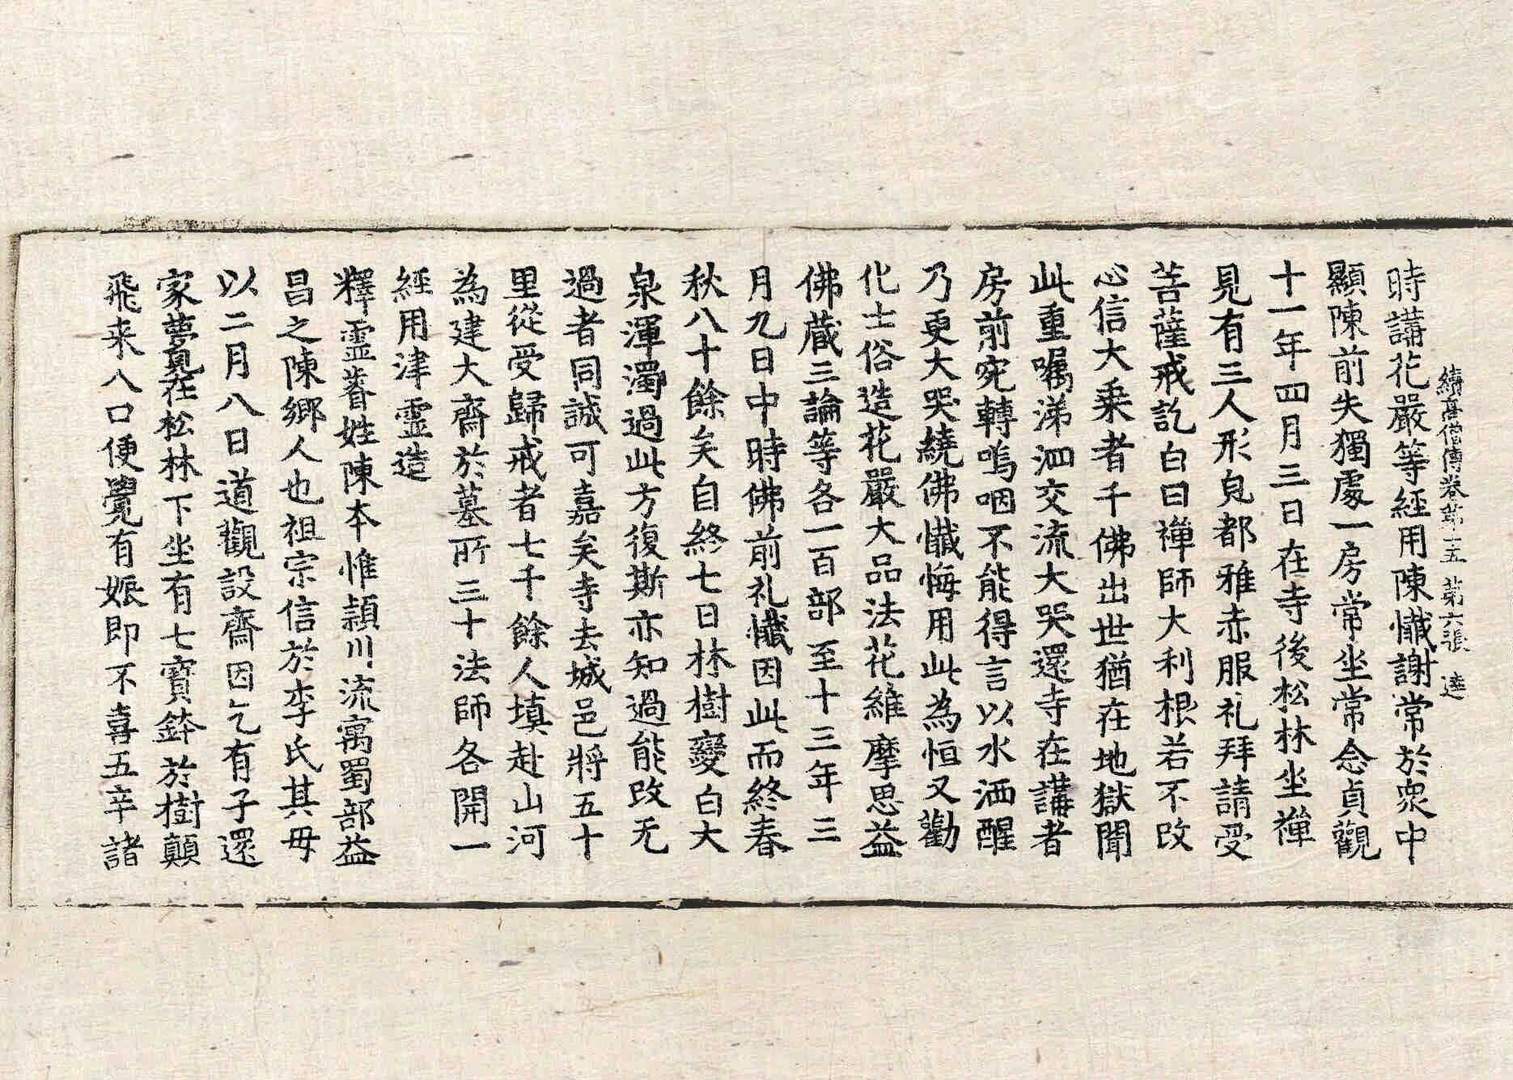 續高僧傳卷第十五 第六張 逵
時講花嚴等經用陳懴謝常於衆中
顯陳前失獨處一房常坐常念貞觀
十一年四月三日在寺後松林坐禪
見有三人形皃都雅赤服礼拜請受
菩薩戒訖白曰禪師大利根若不改
心信大乘者千佛出世猶在地獄聞
此重囑涕泗交流大哭還寺在講者
房前宛轉嗚咽不能得言以水洒醒
乃更大哭繞佛懴悔用此為恒又勸
化士俗造花嚴大品法花維摩思益
佛藏三論等各一百部至十三年三
月九日中時佛前礼懴因此而終春
秋八十餘矣自終七日林樹變白大
泉渾濁過此方復斯亦知過能改无
過者同誠可嘉矣寺去城邑將五十
里從受歸戒者七千餘人填赴山河
為建大齋於墓所三十法師各開一
經用津靈造
釋靈睿姓陳本惟穎川流寓蜀部益
昌之陳鄉人也祖宗信於李氏其母
以二月八日道觀設齋因乞有子還
家夢見在松林下坐有七寶鉢於樹顛
飛来入口便覺有娠即不喜五辛諸